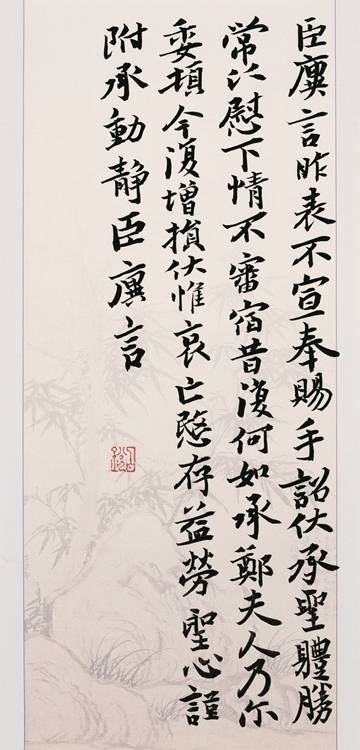 臣廙言昨表不宣奉賜手詔伏承聖體勝
常以慰下情不審宿昔復何如承鄭夫人乃尔
委頓今復增損伏惟哀亡愍存益勞聖心謹
附承動静臣廙言